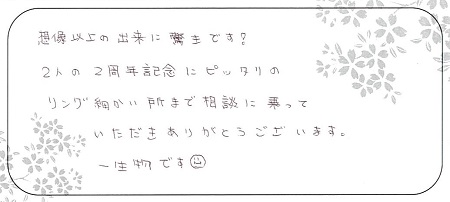 想像以上の出来に驚きです?
2人の2周年記念にピッタリの
リング細かい所まで相談に乗って
いただきありがとうございます。
一生物です☺